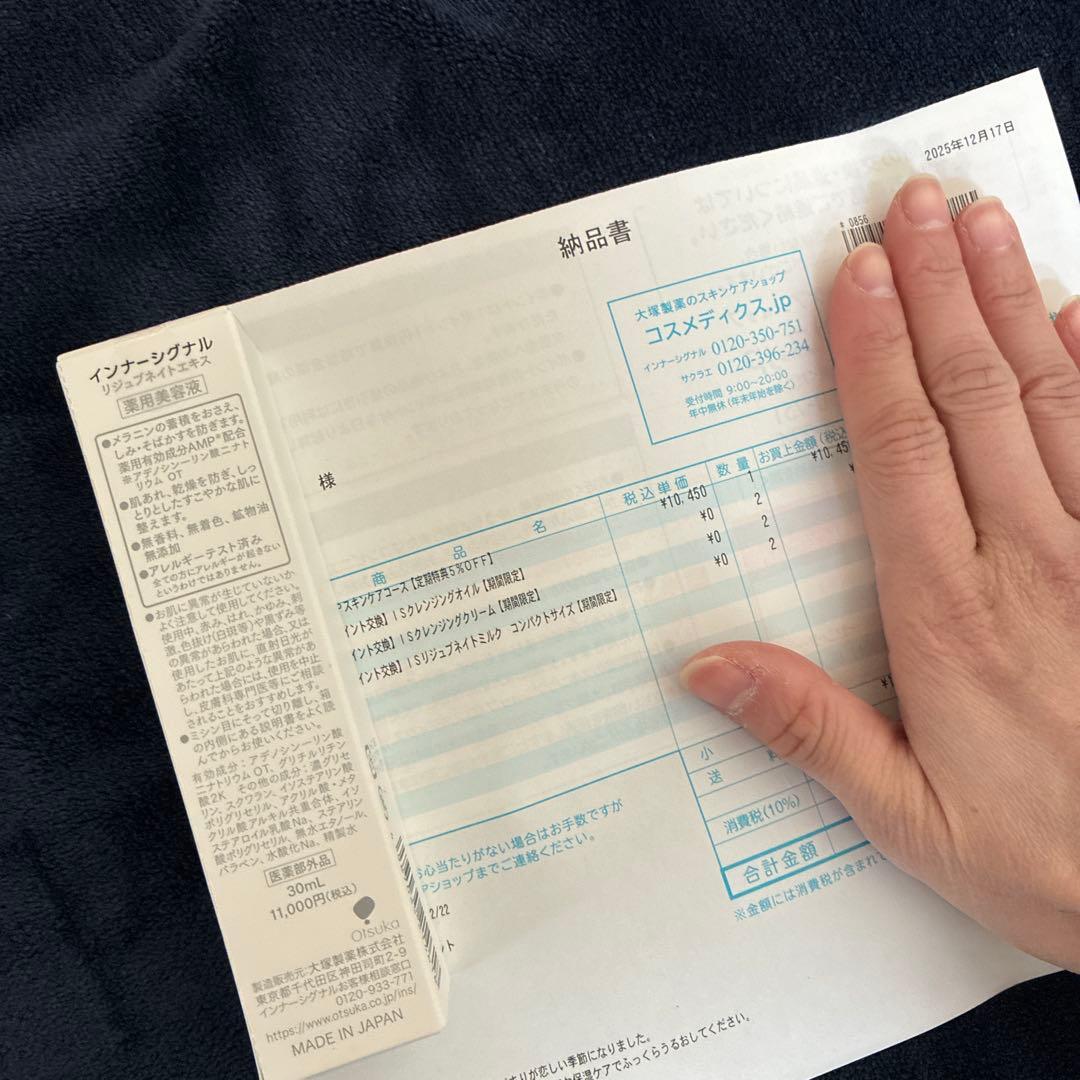 2025年12月17日
納品書
* 0856
大塚製薬のスキンケアショップ
コスメディクス.jp
インナーシグナル 0120-350-751
サクラエ 0120-396-234
受付時間 9:00~20:00
年中無休(年末年始を除く)
様
商 品 名 税込単価 数量 お買上金額(税込
スキンケアコース【定期特典5%OFF】 ¥10,450 1 ¥10,45
イント交換】ISクレンジングオイル【期間限定】 ¥0 2
イント交換】ISクレンジングクリーム【期間限定】 ¥0 2
イント交換】ISリジュブネイトミルク コンパクトサイズ【期間限定】 ¥0 2
小
送
消費税(10%)
合計金額
※金額には消費税が含まれて
心当たりがない場合はお手数ですが
Pショップまでご連絡ください。
2/22
ント
りが恋しい季節になりました。
保湿ケアでふっくらうるおしてください。
インナーシグナル
リジュブネイトエキス
薬用美容液
●メラニンの蓄積をおさえ、
しみ・そばかすを防ぎます。
薬用有効成分AMP※配合
※アデノシン一リン酸二ナト
リウム OT
●肌あれ、乾燥を防ぎ、しっ
とりとしたすこやかな肌に
整えます。
●無香料、無着色、鉱物油
無添加
●アレルギーテスト済み
全ての方にアレルギーが起きない
というわけではありません。
●お肌に異常が生じていないか、
よく注意して使用してください。
使用中、赤み、はれ、かゆみ、刺
激、色抜け(白斑等)や黒ずみ等
の異常があらわれた場合、又は
使用したお肌に、直射日光が
あたって上記のような異常があ
らわれた場合には、使用を中止
し、皮膚科専門医等にご相談
されることをおすすめします。
●ミシン目にそって切り離し、箱
の内側にある説明書をよく読
んでからお使いください。
有効成分:アデノシン一リン酸
二ナトリウムOT、グリチルリチン
酸2K その他の成分:濃グリセ
リン、スクワラン、イソステアリン酸
ポリグリセリル、アクリル酸・メタ
クリル酸アルキル共重合体、イソ
ステアロイル乳酸Na、ステアリン
酸ポリグリセリル、無水エタノール、
パラベン、水酸化Na、精製水
医薬部外品
30mL
11,000円(税込)
Otsuka
製造販売元:大塚製薬株式会社
東京都千代田区神田司町2-9
インナーシグナルお客様相談窓口
0120-933-771
https://www.otsuka.co.jp/ins/
MADE IN JAPAN